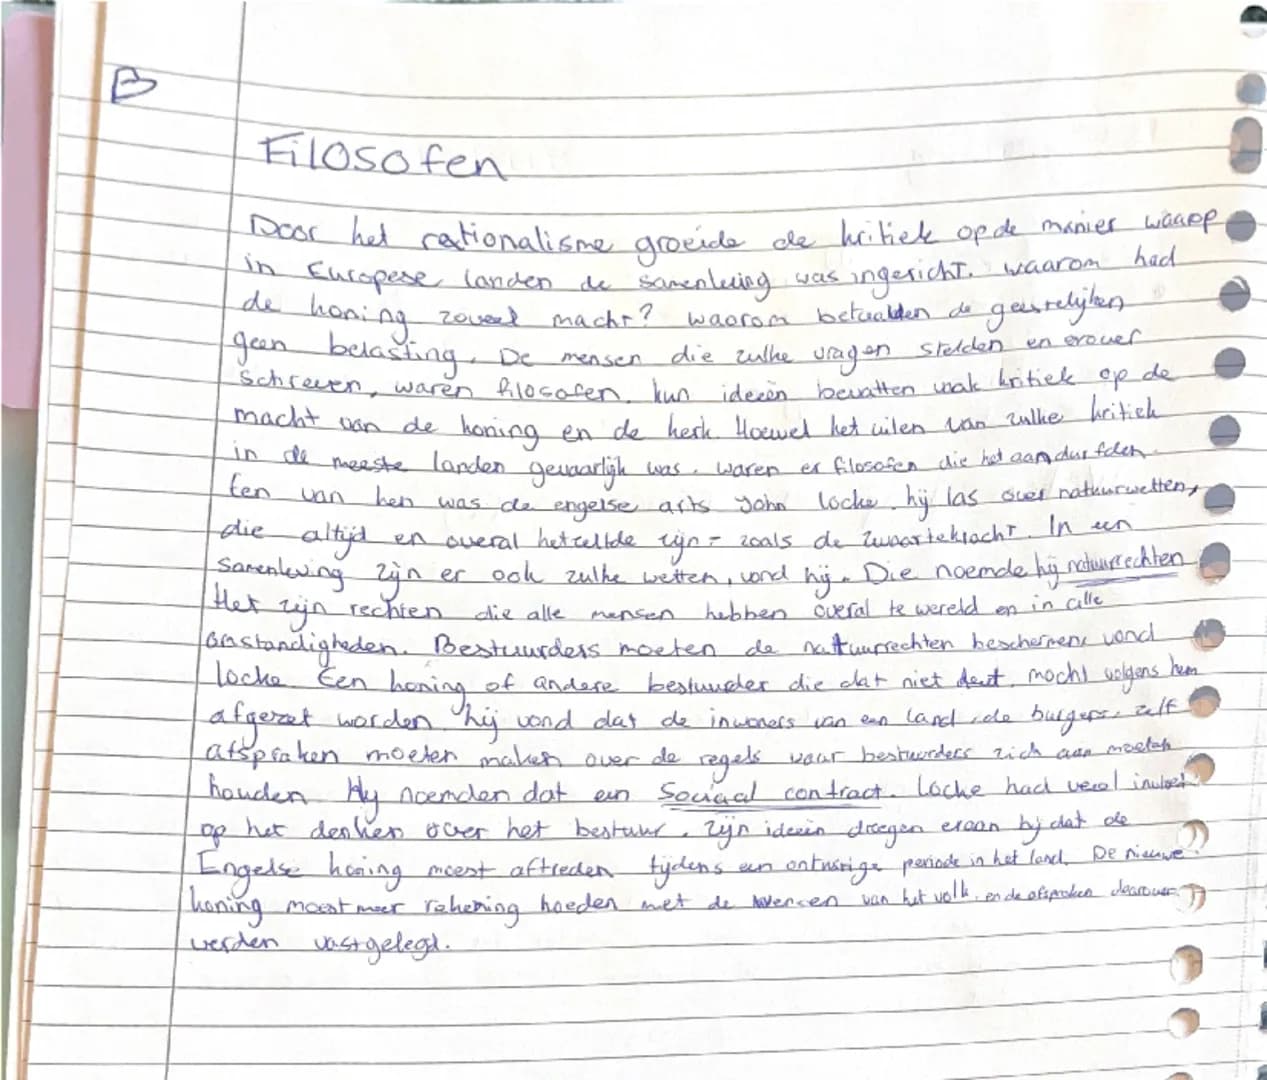 B
Filosofen
Door het rationalisme groeide de kritiek op de manier waarop
in Europese landen de samenleving was ingericht. waarom had
de koning zoveel macht? waarom betaalden de geestelijken
geen belasting. De mensen die zulke vragen stelden en erover
schreven, waren filosofen. hun ideeën bevatten vaak kritiek op de
macht van de koning en de kerk. Hoewel het uiten van zulke kritiek
in de meeste landen gevaarlijk was. waren er filosofen die het aandurfden.
Een van hen was de engelse arts John locke. hij las over natuurwetten,
die altijd en overal hetzelfde zijn - zoals de zwaartekracht. In een
Samenleving zijn er ook zulke wetten, vond hij. Die noemde hij natuurrechten
Het zijn rechten die alle mensen hebben overal te wereld en in alle
omstandigheden. Bestuurders moeten de natuurrechten beschermen, vond
locke Een koning of andere bestuurder die dat niet deed, mocht volgens hem
afgezet worden hij vond dat de inwoners van een land, de burgers, zelf
afspraken moeten maken over de regels waar bestuurders zich aan moeten
houden Hy noemden dat een Sociaal contract. Locke had veel invloed
op het denken over het bestuur. Zijn ideeën droegen eraan bij dat de
Engelse koning moest aftreden tijdens een onrustige periode in het land. De nieuwe
koning moest meer rekening houden met de wensen van het volk, en de afspraken daarover
werden vastgelegd.